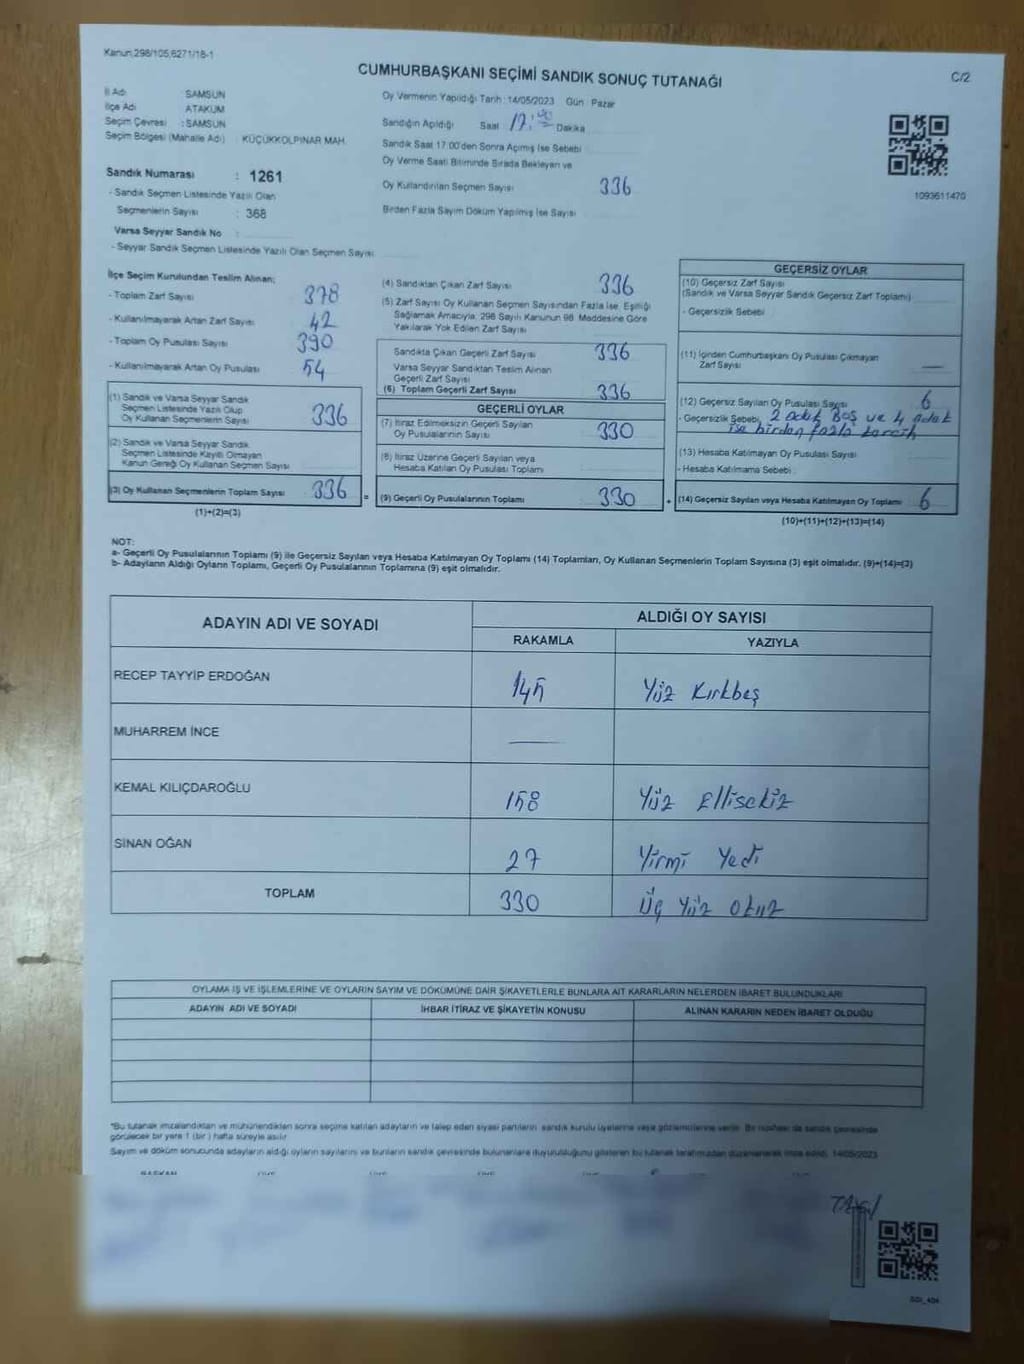 Kanun:298/105,6271/18-1
C/2
CUMHURBAŞKANI SEÇİMİ SANDIK SONUÇ TUTANAĞI
İl Adı SAMSUN
İlçe Adı ATAKUM
Seçim Çevresi : SAMSUN
Seçim Bölgesi (Mahalle Adı) : KÜÇÜKKOLPINAR MAH.
Sandık Numarası : 1261
- Sandık Seçmen Listesinde Yazılı Olan
Seçmenlerin Sayısı : 368
Varsa Seyyar Sandık No :
- Seyyar Sandık Seçmen Listesinde Yazılı Olan Seçmen Sayısı
Oy Vermenin Yapıldığı Tarih : 14/05/2023 Gün : Pazar
Sandığın Açıldığı Saat 17:00 Dakika
Sandık Saat 17:00'den Sonra Açımış İse Sebebi
Oy Verme Saati Bitiminde Sırada Bekleyen ve
Oy Kullandırılan Seçmen Sayısı 336
Birden Fazla Sayım Döküm Yapılmış İse Sayısı
1093611470
İlçe Seçim Kurulundan Teslim Alınan;
- Toplam Zarf Sayısı 378
- Kullanılmayarak Artan Zarf Sayısı 42
- Toplam Oy Pusulası Sayısı 390
- Kullanılmayarak Artan Oy Pusulası 54
(1) Sandık ve Varsa Seyyar Sandık
Seçmen Listesinde Yazılı Olup
Oy Kullanan Seçmenlerin Sayısı 336
(2) Sandık ve Varsa Seyyar Sandık
Seçmen Listesinde Kayıtlı Olmayan
Kanun Gereği Oy Kullanan Seçmen Sayısı
(3) Oy Kullanan Seçmenlerin Toplam Sayısı 336 =
(1)+(2)=(3)
(4) Sandıktan Çıkan Zarf Sayısı 336
(5) Zarf Sayısı Oy Kullanan Seçmen Sayısından Fazla İse, Eşitliği
Sağlamak Amacıyla, 298 Sayılı Kanunun 98. Maddesine Göre
Yakılarak Yok Edilen Zarf Sayısı
Sandıkta Çıkan Geçerli Zarf Sayısı 336
Varsa Seyyar Sandıktan Teslim Alınan
Geçerli Zarf Sayısı
(6) Toplam Geçerli Zarf Sayısı 336
GEÇERLİ OYLAR
(7) İtiraz Edilmeksizin Geçerli Sayılan
Oy Pusulalarının Sayısı 330
(8) İtiraz Üzerine Geçerli Sayılan veya
Hesaba Katılan Oy Pusulası Toplamı
(9) Geçerli Oy Pusulalarının Toplamı 330 +
GEÇERSİZ OYLAR
(10) Geçersiz Zarf Sayısı
(Sandık ve Varsa Seyyar Sandık Geçersiz Zarf Toplamı)
- Geçersizlik Sebebi
(11) İçinden Cumhurbaşkanı Oy Pusulası Çıkmayan
Zarf Sayısı —
(12) Geçersiz Sayılan Oy Pusulası Sayısı 6
- Geçersizlik Sebebi 2 adet Boş ve 4 adet
ise birden fazla tercih
(13) Hesaba Katılmayan Oy Pusulası Sayısı
- Hesaba Katılmama Sebebi
(14) Geçersiz Sayılan veya Hesaba Katılmayan Oy Toplamı 6
(10)+(11)+(12)+(13)=(14)
NOT:
a- Geçerli Oy Pusulalarının Toplamı (9) ile Geçersiz Sayılan veya Hesaba Katılmayan Oy Toplamı (14) Toplamları, Oy Kullanan Seçmenlerin Toplam Sayısına (3) eşit olmalıdır. (9)+(14)=(3)
b- Adayların Aldığı Oyların Toplamı, Geçerli Oy Pusulalarının Toplamına (9) eşit olmalıdır.
ADAYIN ADI VE SOYADI
ALDIĞI OY SAYISI
RAKAMLA YAZIYLA
RECEP TAYYİP ERDOĞAN 145 Yüz Kırkbeş
MUHARREM İNCE —
KEMAL KILIÇDAROĞLU 158 Yüz Ellisekiz
SİNAN OĞAN 27 Yirmi Yedi
TOPLAM 330 Üç Yüz Otuz
OYLAMA İŞ VE İŞLEMLERİNE VE OYLARIN SAYIM VE DÖKÜMÜNE DAİR ŞİKAYETLERLE BUNLARA AİT KARARLARIN NELERDEN İBARET BULUNDUKLARI
ADAYIN ADI VE SOYADI İHBAR İTİRAZ VE ŞİKAYETİN KONUSU ALINAN KARARIN NEDEN İBARET OLDUĞU
*Bu tutanak imzalandıktan ve mühürlendikten sonra seçime katılan adayların ve talep eden siyasi partilerin sandık kurulu üyelerine veya gözlemcilerine verilir. Bir nüshası da sandık çevresinde
görülecek bir yere 1 (bir) hafta süreyle asılır.
Sayım ve döküm sonucunda adayların aldığı oyların sayılarını ve bunların sandık çevresinde bulunanlara duyurulduğunu gösteren bu tutanak tarafımızdan düzenlenerek imza edildi. 14/05/2023